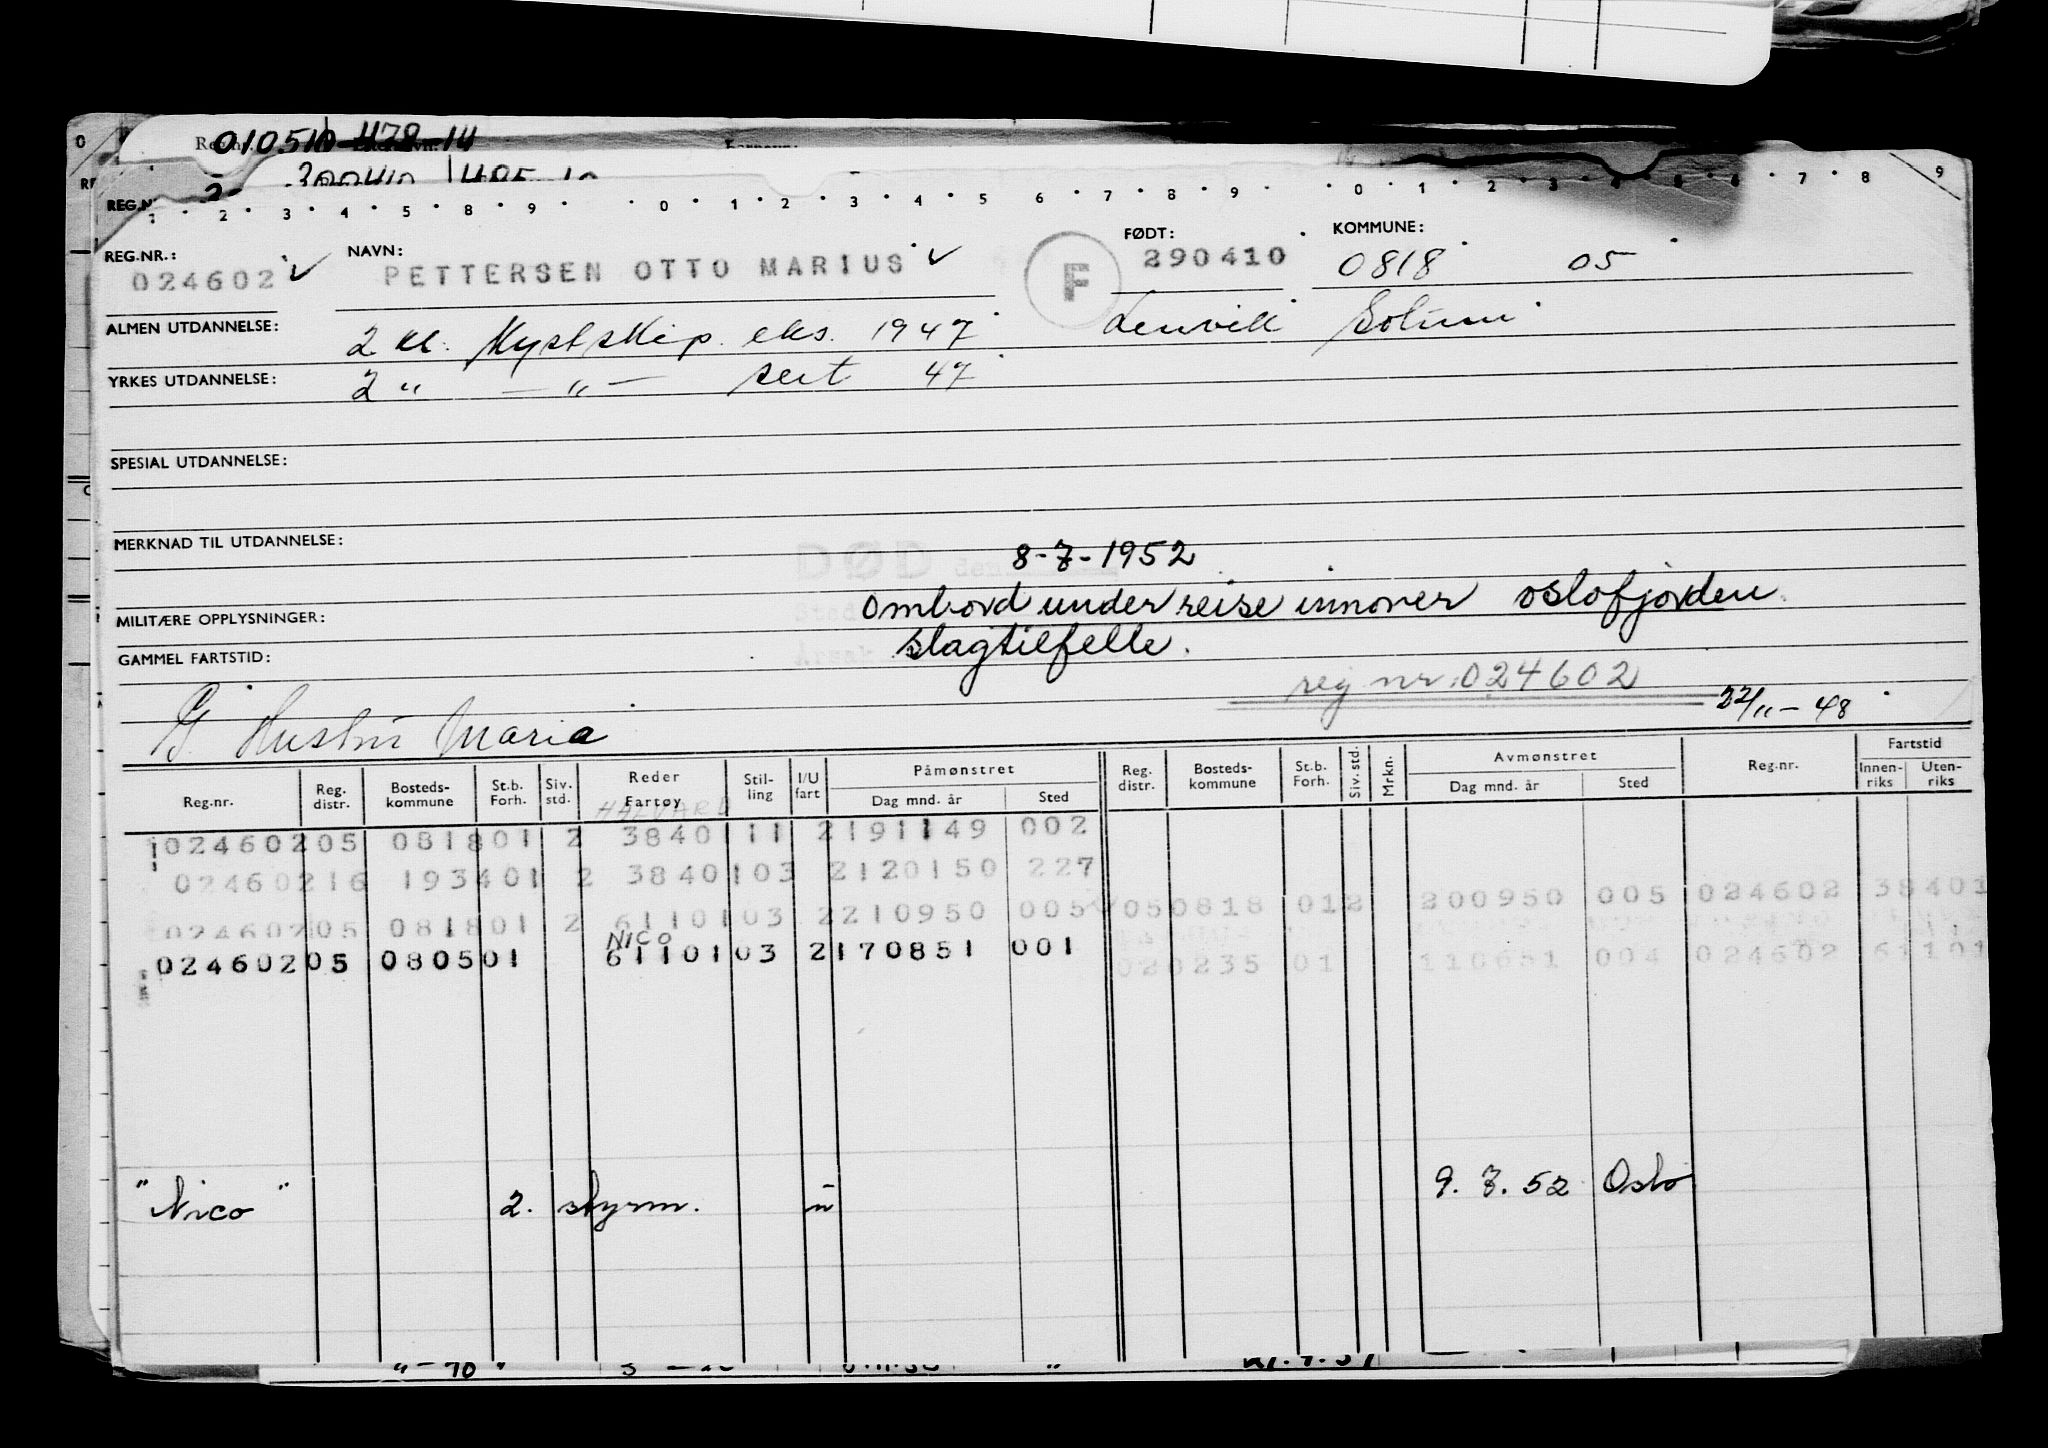 010510-478-14
REG.NR.: NAVN: FØDT: KOMMUNE:
024602 ✓ PETTERSEN OTTO MARIUS ✓ F 290410 0818 05
ALMEN UTDANNELSE: 2 kl. Kystskip. eks. 1947 Lenvik Solum
YRKES UTDANNELSE: 2 " — " — sert 47
SPESIAL UTDANNELSE:
MERKNAD TIL UTDANNELSE:
DØD den 8-7-1952
MILITÆRE OPPLYSNINGER: Sted ombord under reise innover oslofjorden.
GAMMEL FARTSTID: Årsak slagtilfelle.
reg nr. 024602
22/11-48
G. Hustru Maria
Reg.nr. Reg. distr. Bosteds-kommune St.b. Forh. Siv. std. Reder Fartøy Stil-ling I/U fart Påmønstret Dag mnd. år Sted Reg. distr. Bosteds-kommune St.b. Forh. Siv. std. Mrkn. Avmønstret Dag mnd. år Sted Reg.nr. Fartstid Innen-riks Uten-riks
HALVARD
024602 05 0818 01 2 3840 1 11 2 191149 002
024602 16 1934 01 2 3840 1 03 2 120150 227
024602 05 0818 01 2 6110 1 03 2 210950 005 05 0818 01 2 200950 005 024602 38401
NICO
024602 05 0805 01 6110 1 03 2 170851 001 02 0235 01 110651 004 024602 61101
"Nico" 2. styrm. u 9.7.52 Oslo